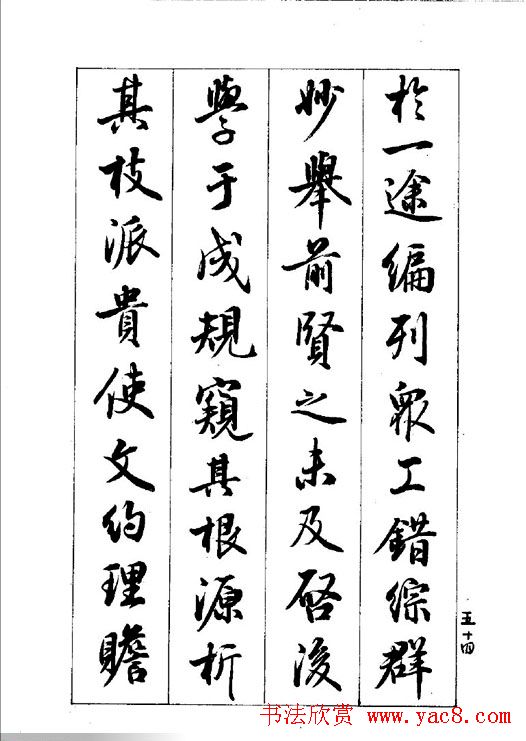 於一途編列衆工錯綜群
妙舉前賢之未及啓後
學于成規窺其根源析
其枝派貴使文約理贍
五十四
书法欣赏 www.yac8.com